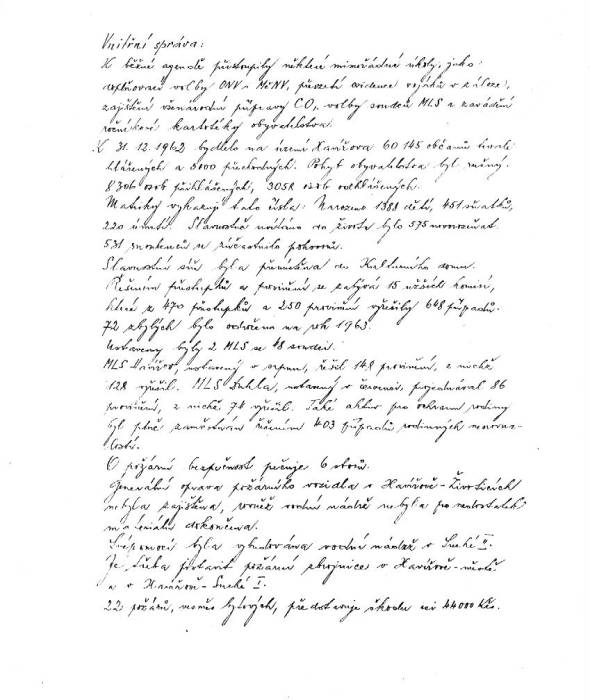 Vnitřní správa:
K běžné agendě přistoupily některé mimořádné úkoly, jako
doplňovací volby ONV a MěNV, převzetí evidence vojáků v záloze,
zajištění všenárodní přípravy CO, volby soudců MLS a zavádění
ročníkové kartotéky obyvatelstva.
K 31. 12. 1962 bydlelo na území Havířova 60 145 občanů trvale
hlášených a 5000 přechodných. Pohyb obyvatelstva byl
8 306 osob přihlášených, 3058 osob odhlášených.
Matriky vykazují tato čísla: Narozeno 1388 dětí, 451 sňatků,
220 úmrtí. Slavnostně uvítáno do života bylo 575 novorozeňat.
531 se zúčastnilo pohovorů.
Slavnostní síň byla přemístěna do Kulturního domu.
Řešením přestupků a provinění se zabývá 15 užších komisí,
které z 470 přestupků a 250 provinění vyřešily 648 případů.
72 zbylých bylo odročeno na rok 1963.
Ustaveny byly 2 MLS se 48 soudci.
MLS Havířov, ustavený v srpnu, řešil 148 provinění, z nichž
128 vyřešil. MLS Dukla, ustavený v červenci, projednával 86
provinění, z nichž 74 vyřešil. Také aktiv pro ochranu rodiny
byl plně zaměstnán řešením 403 případů rodinných nesrovna-
lostí.
O požární bezpečnost pečuje 6 sborů.
Generální oprava požárního vozidla v Havířově-Životicích
nebyla zajištěna, rovněž vodní nádrž nebyla pro nedostatek
materiálu dokončena.
Svépomocí byla vybudována vodní nádrž v Suché II.
Je třeba postavit požární zbrojnice v Havířově-městě
a v Havířově-Suché I.
22 požárů, vesměs bytových, představuje škodu asi 44000 Kčs.